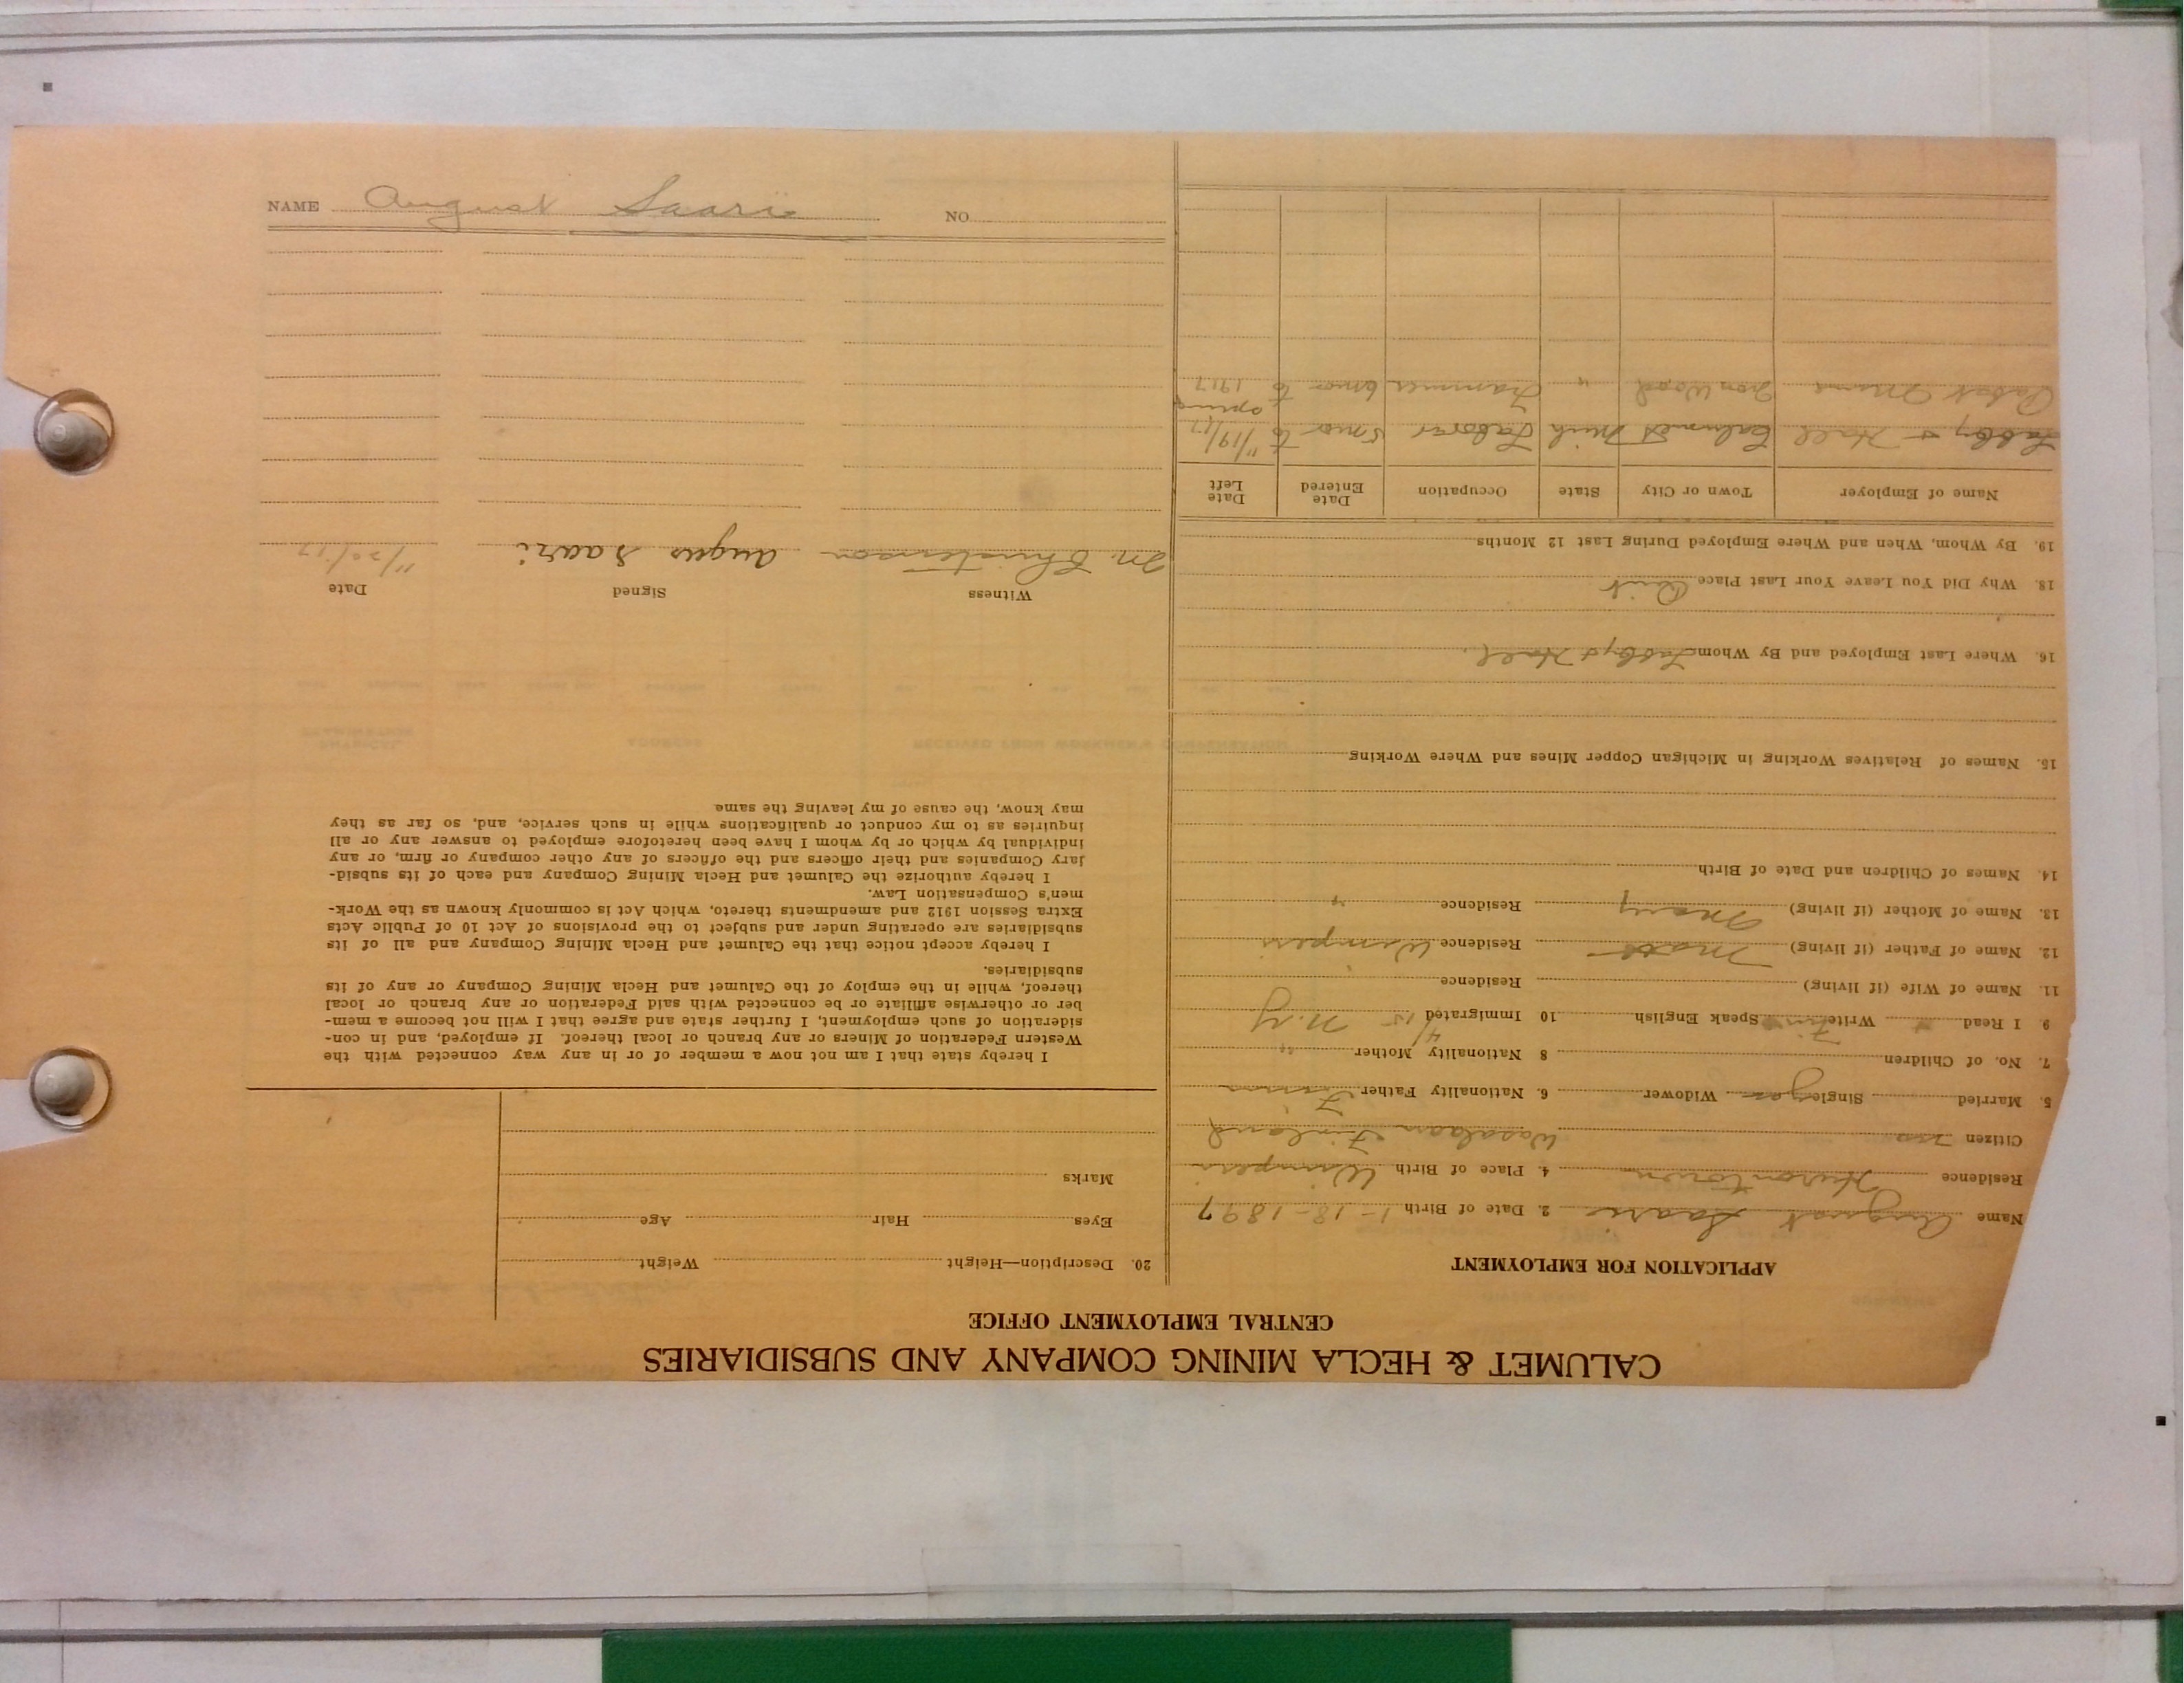 CALUMET & HECLA MINING COMPANY AND SUBSIDIARIES
CENTRAL EMPLOYMENT OFFICE
APPLICATION FOR EMPLOYMENT
Name August Saari 2. Date of Birth 1-18-1897
Residence Hurontown 4. Place of Birth Wimperi
Citizen no Wasalaan Finland
5. Married Single yes Widower 6. Nationality Father Finn
7. No. of Children 8 Nationality Mother "
9 I Read Write Finn Speak English 10 Immigrated 4/15 N.Y
11. Name of Wife (if living) Residence
12. Name of Father (if living) Matt Residence Wimperi
13. Name of Mother (if living) Mary Residence "
14. Names of Children and Date of Birth
15. Names of Relatives Working in Michigan Copper Mines and Where Working
16. Where Last Employed and By Whom & Hall.
18. Why Did You Leave Your Last Place Quit
19. By Whom, When and Where Employed During Last 12 Months
Name of Employer Town or City State Occupation Date Entered Date Left
& Hall Calumet Mich Laborer 5 mos to 11/19/17
Pabst Mine Iron Wood " Trammer 6 mos to Spring 1917
20. Description—Height Weight
Eyes Hair Age
Marks
I hereby state that I am not now a member of or in any way connected with the
Western Federation of Miners or any branch or local thereof. If employed, and in con-
sideration of such employment, I further state and agree that I will not become a mem-
ber or otherwise affiliate or be connected with said Federation or any branch or local
thereof, while in the employ of the Calumet and Hecla Mining Company or any of its
subsidiaries.
I hereby accept notice that the Calumet and Hecla Mining Company and all of its
subsidiaries are operating under and subject to the provisions of Act 10 of Public Acts
Extra Session 1912 and amendments thereto, which Act is commonly known as the Work-
men's Compensation Law.
I hereby authorize the Calumet and Hecla Mining Company and each of its subsid-
iary Companies and their officers and the officers of any other company or firm, or any
individual by which or by whom I have been heretofore employed to answer any or all
inquiries as to my conduct or qualifications while in such service, and, so far as they
may know, the cause of my leaving the same
Witness Signed Date
M. Christenson Augus Saari 11/20/17
NAME August Saari NO.